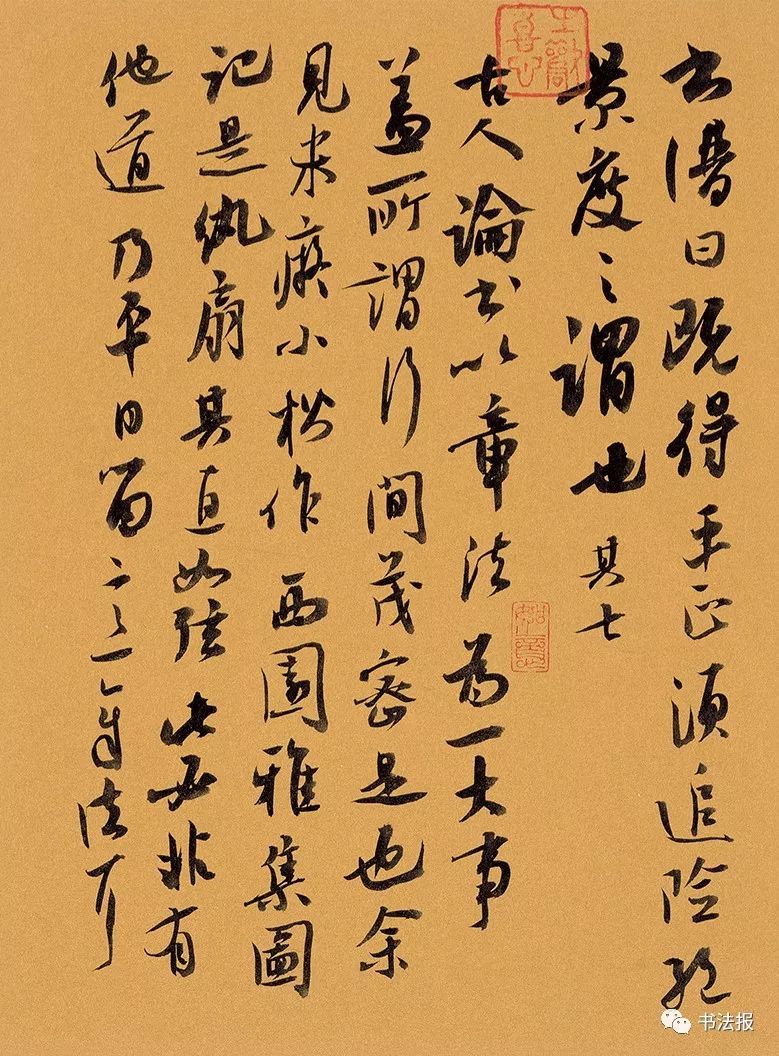 书譜曰既得平正须追险绝
景度之謂也 其七
古人論书以章法為一大事
盖所謂行間茂密是也余
見米癡小楷作西園雅集圖
記是紈扇其直如弦此必非有
他道乃平日留意章法耳
书法报